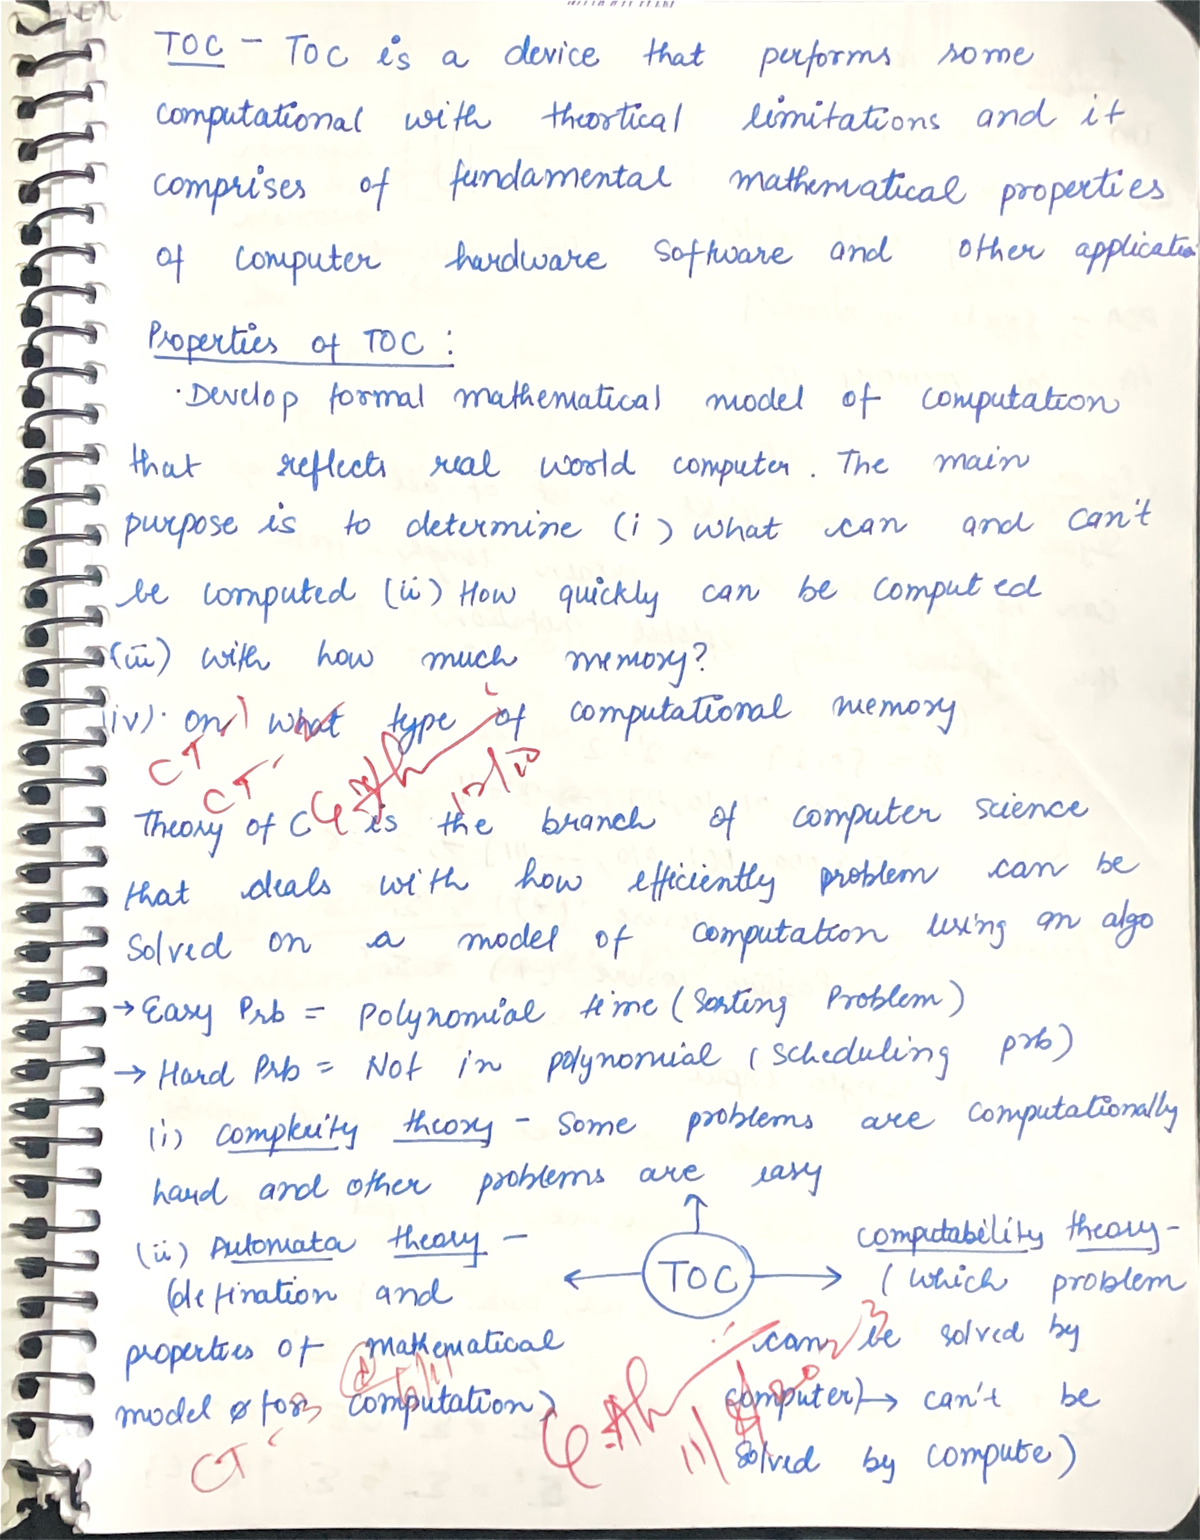 TOC - TOC is a device that performs some
computational with theortical limitations and it
comprises of fundamental mathematical properties
of computer hardware software and other applicatio
Properties of TOC :
·Develop formal mathematical model of computation
that reflects real world computer. The main
purpose is to determine (i) what can and can't
be computed (ii) How quickly can be computed
(iii) with how much memory?
(iv). on what type of computational memory
CT
CT
Theory of C is the branch of computer science
that deals with how efficiently problem can be
solved on a model of computation using an algo
→ Easy Prb = polynomial time (Sorting Problem)
→ Hard Prb = Not in polynomial (scheduling prb)
(i) complexity theory - Some problems are computationally
hard and other problems are easy
(ii) Automata theory -
(defination and
properties of mathematical
model of for computation)
TOC
computability theory -
(which problem
can be solved by
computer) → can't be
solved by compute)
CT